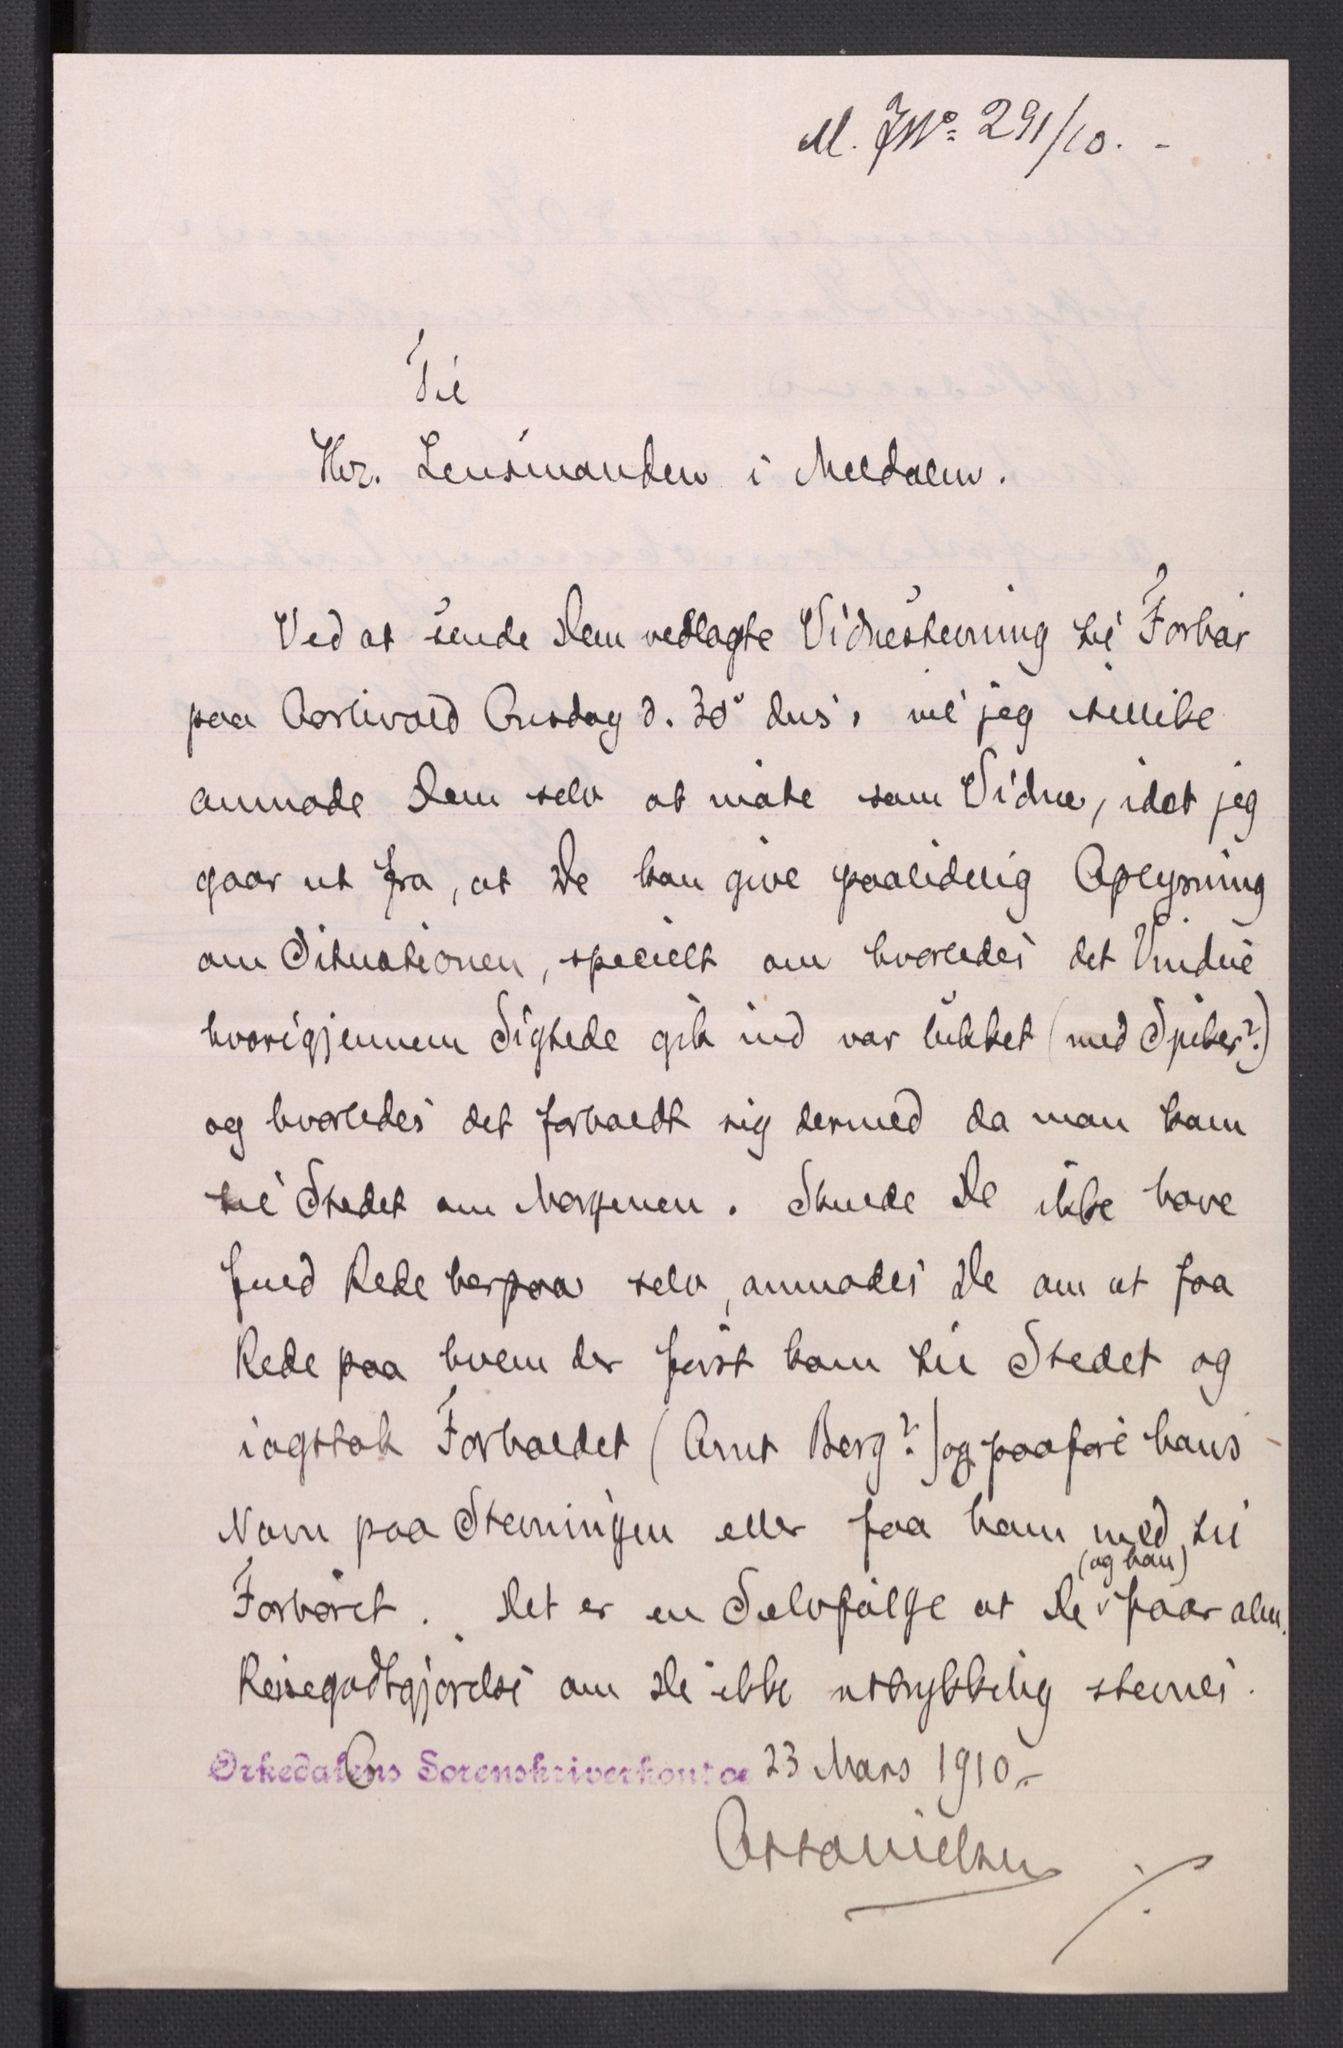 M. J No 291/10. -
Til
Hr. Lensmanden i Meldalen.
Ved at sende Dem vedlagte Vidnestevning til Forhør
paa Aarlivold Onsdag d. 30' dns', vil jeg tillike
anmode Dem selv at møte som Vidne, idet jeg
gaar ut fra, at De kan give paalidelig Oplysning
om Situationen, specielt om hvorledes det Vindue
hvorigjennem Sigtede gik ind var lukket (med Spiker?)
og hvorledes det forholdt sig dermed da man kom
til Stedet om Morgenen. Skulde De ikke have
fuld Rede herpaa selv, anmodes De om at faa
Rede paa hvem der først kom til Stedet og
iagttok Forholdet (Arnt Berg?) og paaføre hans
Navn paa Stevningen eller faa ham med til
Forhøret. Det er en Selvfølge at De (og han) faar alm.
Reisegodtgjørelse om De ikke uttrykkelig stevnes.
Orkedalens Sorenskriverkontor 23 Mars 1910.-
Otto Nielsen
./.